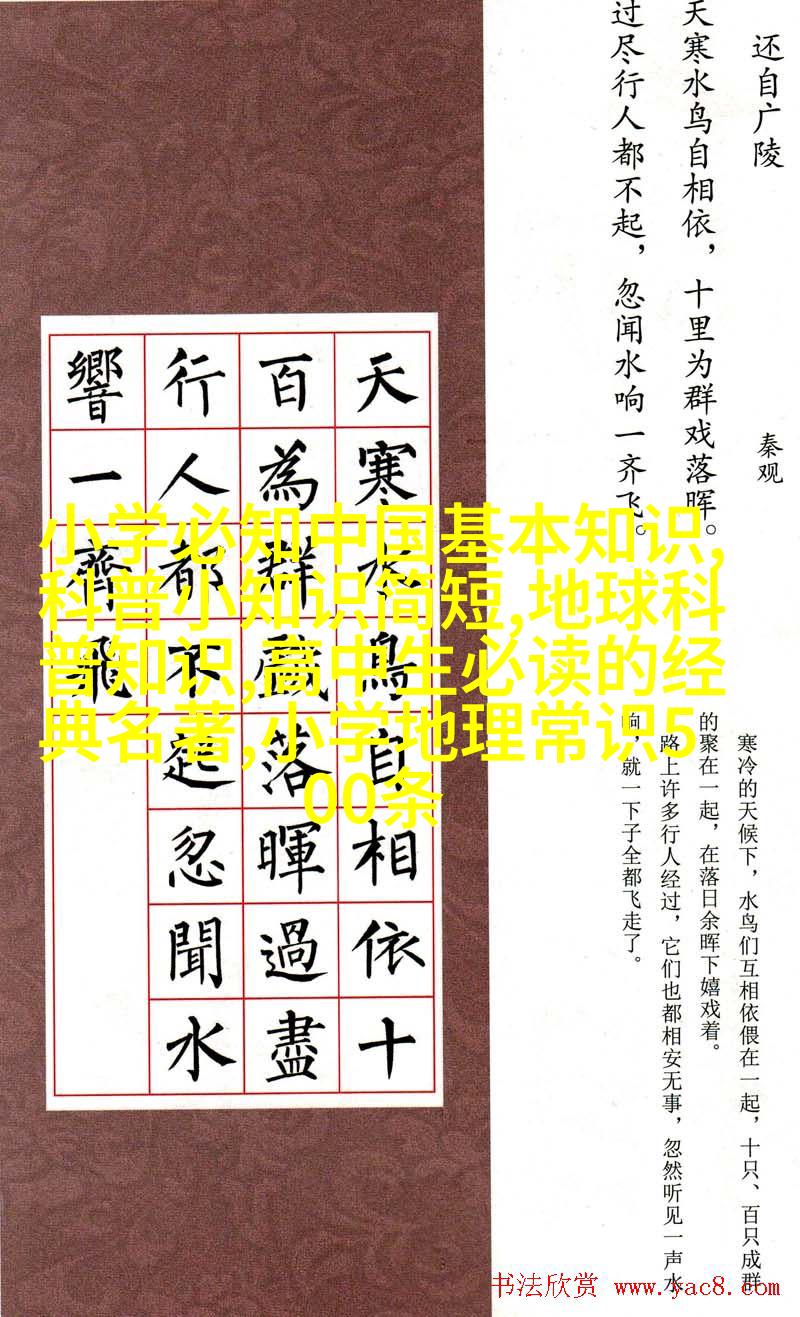 还自广陵
秦观
天寒水鸟自相依，十里为群戏落晖。
过尽行人都不起，忽闻水响一齐飞。
天寒水鳥自相依十
百為群戲落暉過盡
行人都不起忽聞水
響一齊飛
小学必知中国基本知识,
科普小知识简短,地球科
普知识,高中生必读的经
典名著,小学地理常识5
00条
寒冷的天候下，水鸟们互相依偎在一起，十只、百只成群
的聚在一起，在落日余晖下嬉戏着。
路上许多行人经过，它们也都相安无事，忽然听见一声水
响，就一下子全都飞走了。
书法欣赏 www.yac8.com